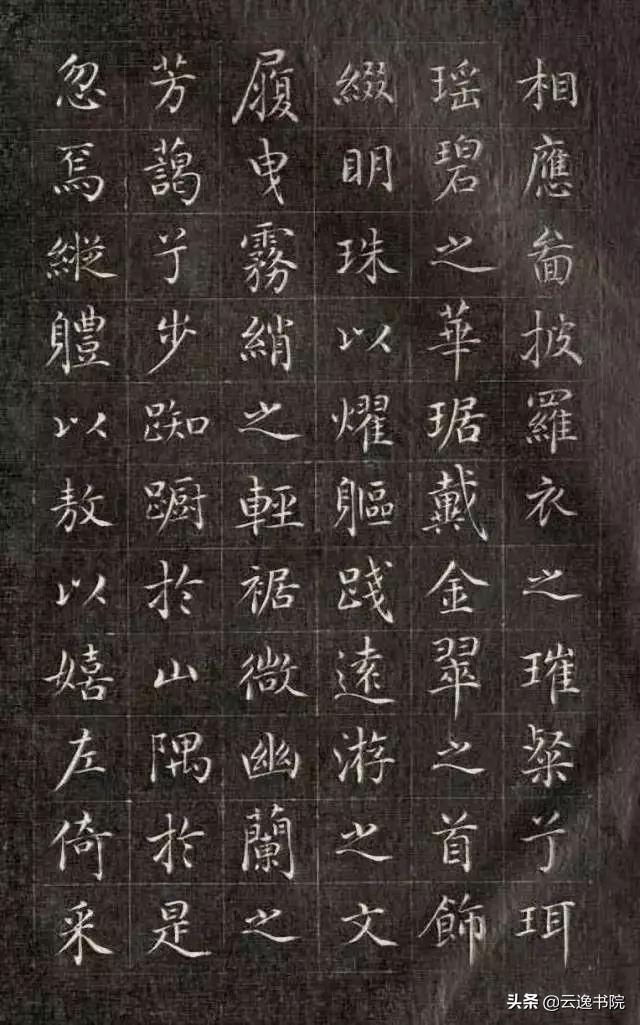 相應啚披羅衣之璀粲兮珥
瑶碧之華琚戴金翠之首飾
綴明珠以燿軀踐遠游之文
履曳霧綃之輕裾微幽蘭之
芳藹兮步踟蹰於山隅於是
忽焉縱軆以敖以嬉左倚采
头条 @云逸书院